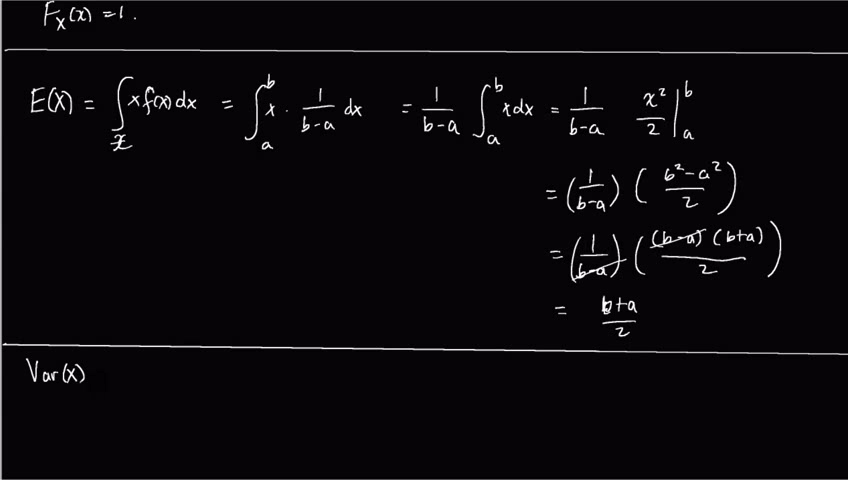 F_X(x) = 1.
E(X) = ∫_𝒳 x f(x) dx = ∫_a^b x · 1/(b-a) dx = 1/(b-a) ∫_a^b x dx = 1/(b-a) x²/2 |_a^b
= (1/(b-a)) ((b²-a²)/2)
= (1/(b-a)) ((b-a)(b+a)/2)
= (b+a)/2
Var(X)